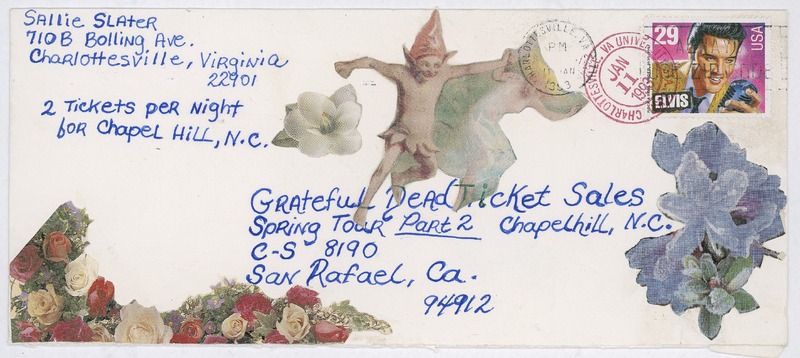 Sallie Slater
710B Bolling Ave.
Charlottesville, Virginia
22901
2 Tickets per Night
for Chapel Hill, N.C.
CHARLOTTESVILLE, VA
PM
JAN
1993
CHARLOTTESVILLE VA UNIVER
JAN
11
29
USA
ELVIS
Grateful Dead Ticket Sales
Spring Tour Part 2 Chapelhill, N.C.
C-S 8190
San Rafael, Ca.
94912